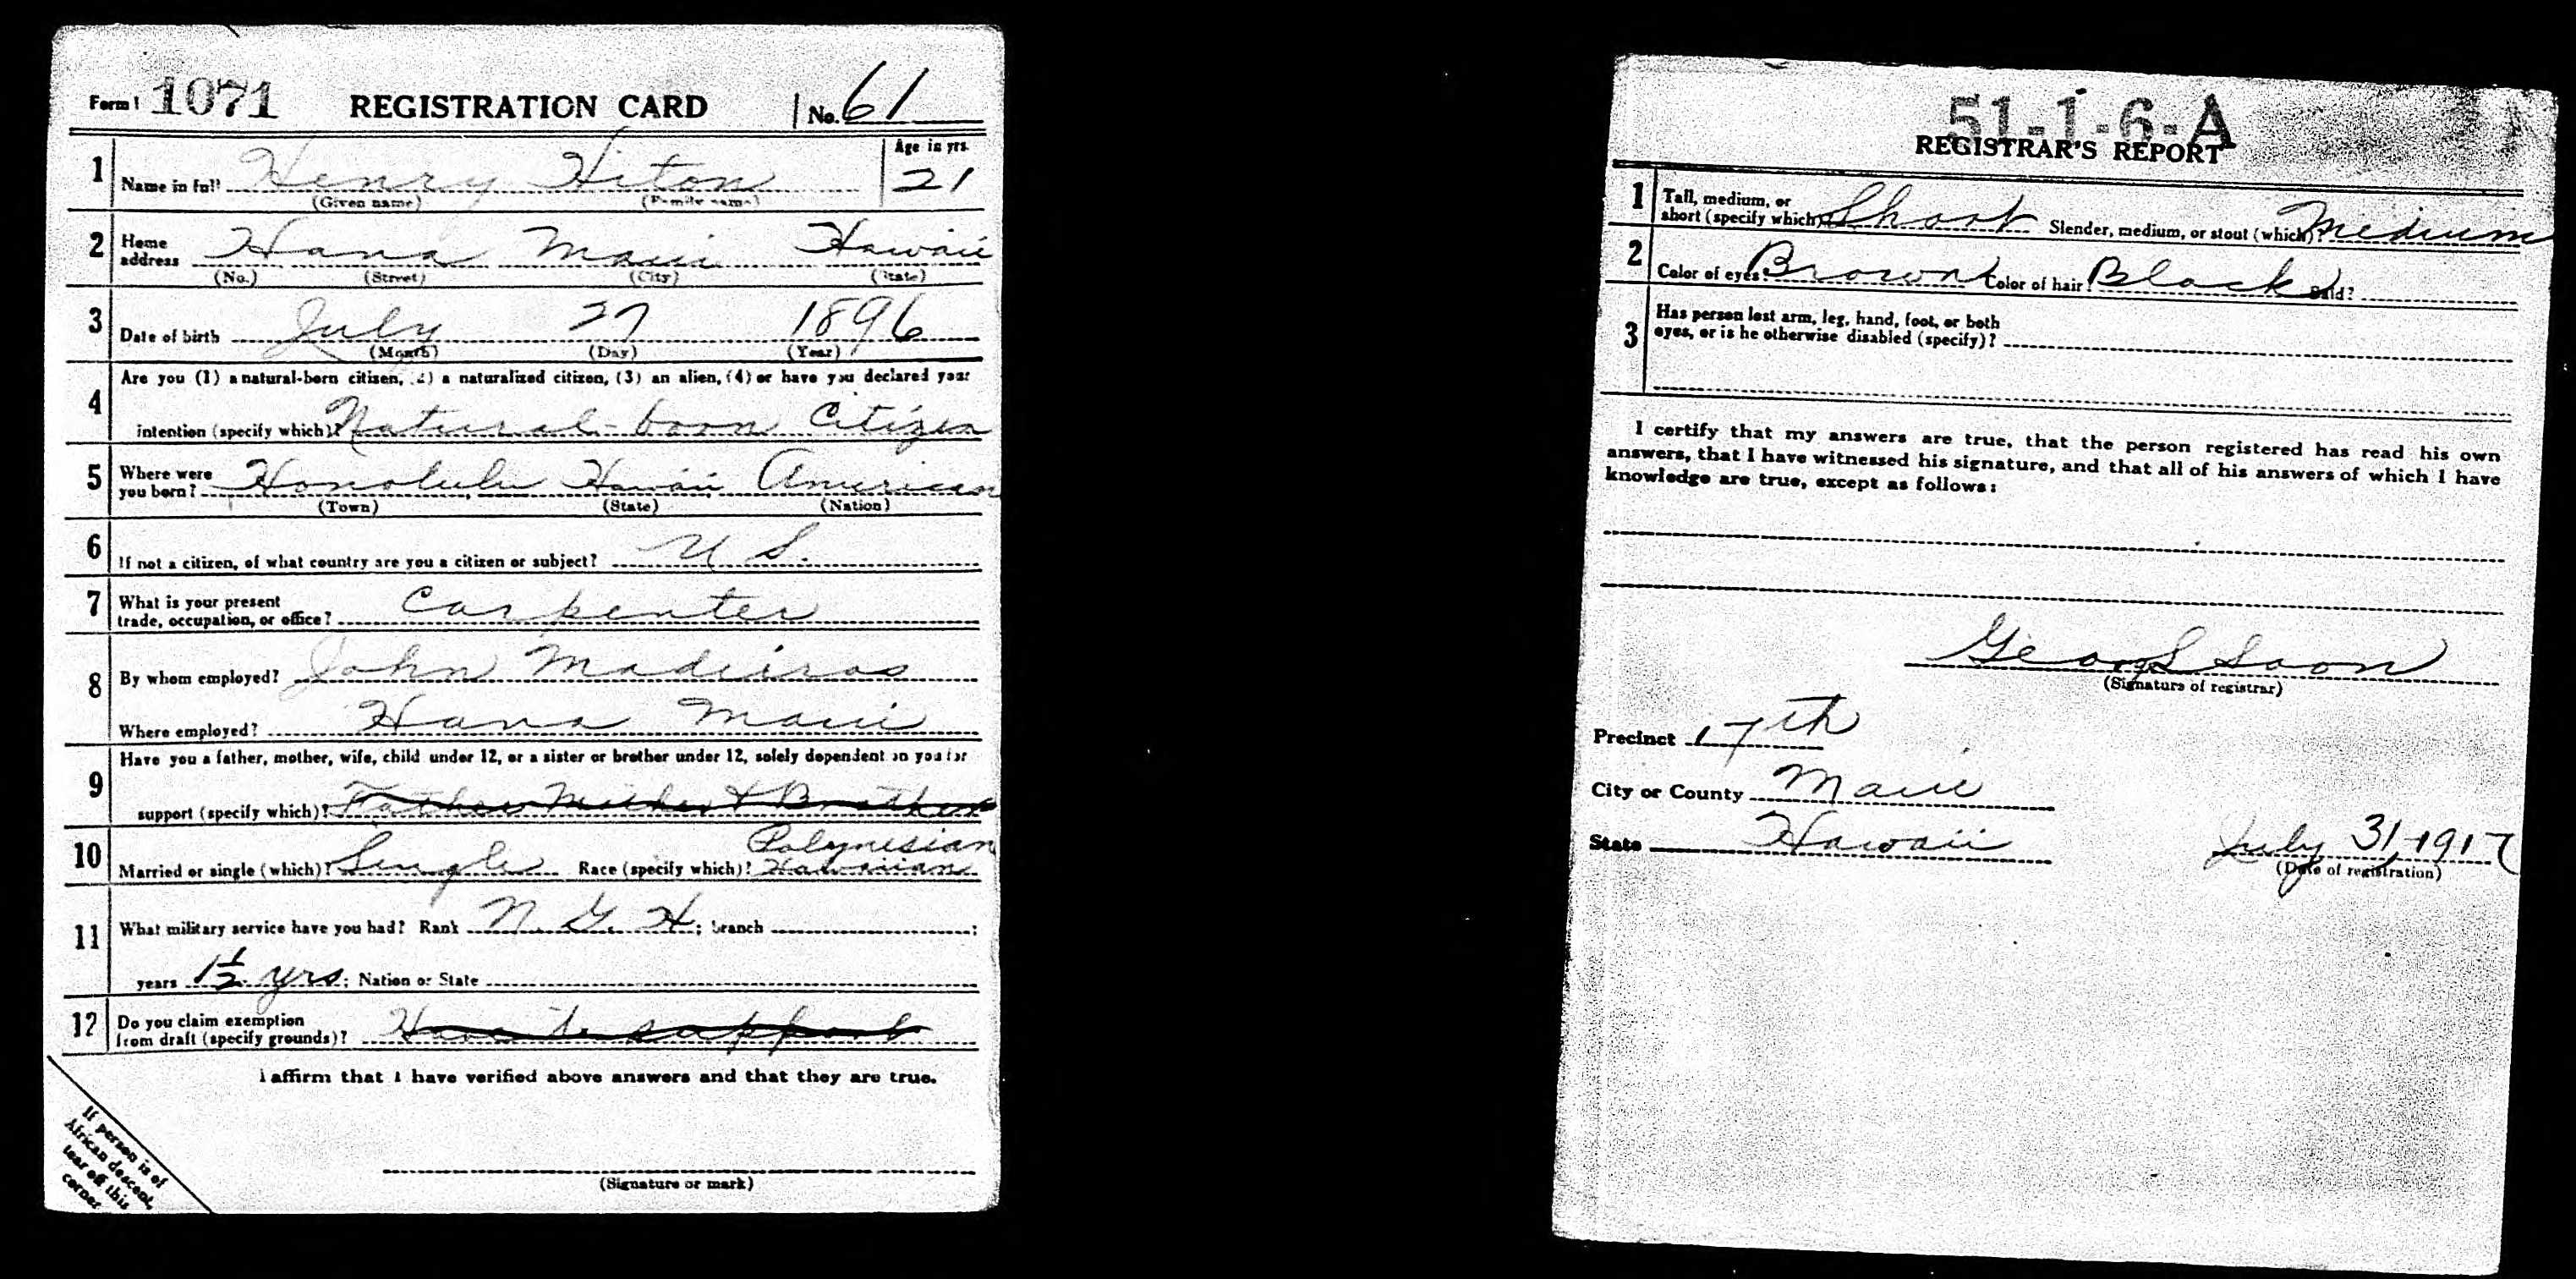 Form 1 1071 REGISTRATION CARD No. 61
1 Name in full Henry Hiton Age in yrs. 21
(Given name) (Family name)
2 Home address Hana Maui Hawaii
(No.) (Street) (City) (State)
3 Date of birth July 27 1896
(Month) (Day) (Year)
Are you (1) a natural-born citizen, (2) a naturalized citizen, (3) an alien, (4) or have you declared your
4 intention (specify which)? Natural-born Citizen
5 Where were you born? Honolulu Hawaii American
(Town) (State) (Nation)
6 If not a citizen, of what country are you a citizen or subject? U S.
7 What is your present trade, occupation, or office? Carpenter
8 By whom employed? John Madeiros
Where employed? Hana Maui
Have you a father, mother, wife, child under 12, or a sister or brother under 12, solely dependent on you for
9 support (specify which)? Father Mother & Brother
Polynesian
10 Married or single (which)? Single Race (specify which)? Hawaiian
11 What military service have you had? Rank N. G. H ; branch ;
years 1½ yrs ; Nation or State
12 Do you claim exemption from draft (specify grounds)? Have to support
I affirm that I have verified above answers and that they are true.
(Signature or mark)
If person is of
African descent,
tear off this
corner
51-1-6-A
REGISTRAR'S REPORT
1 Tall, medium, or short (specify which)? Short Slender, medium, or stout (which)? Medium
2 Color of eyes? Brown Color of hair? Black Bald?
3 Has person lost arm, leg, hand, foot, or both
eyes, or is he otherwise disabled (specify)?
I certify that my answers are true, that the person registered has read his own
answers, that I have witnessed his signature, and that all of his answers of which I have
knowledge are true, except as follows:
Soon
(Signature of registrar)
Precinct 17th
City or County Maui
State Hawaii July 31, 1917
(Date of registration)